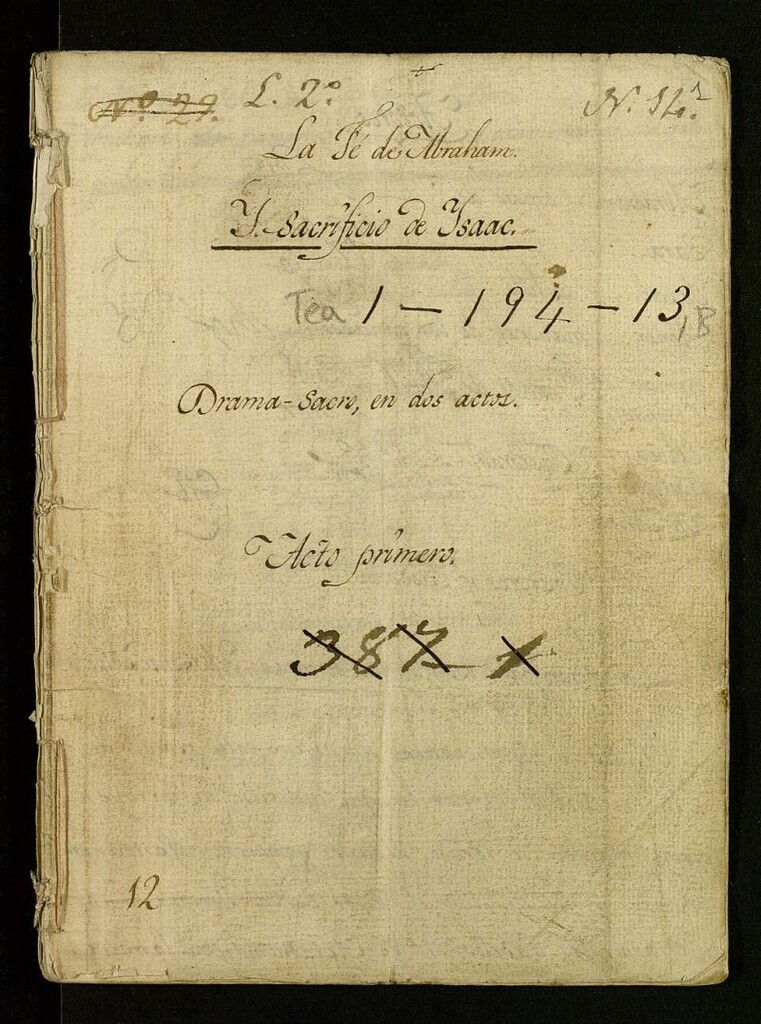 Nº 29. L. 2º N. 14.
La Fé de Abraham.
Y. Sacrificio de Ysaac.
Tea 1 - 194 - 13, B
Drama-Sacro, en dos actos.
Acto primero.
387 1
12